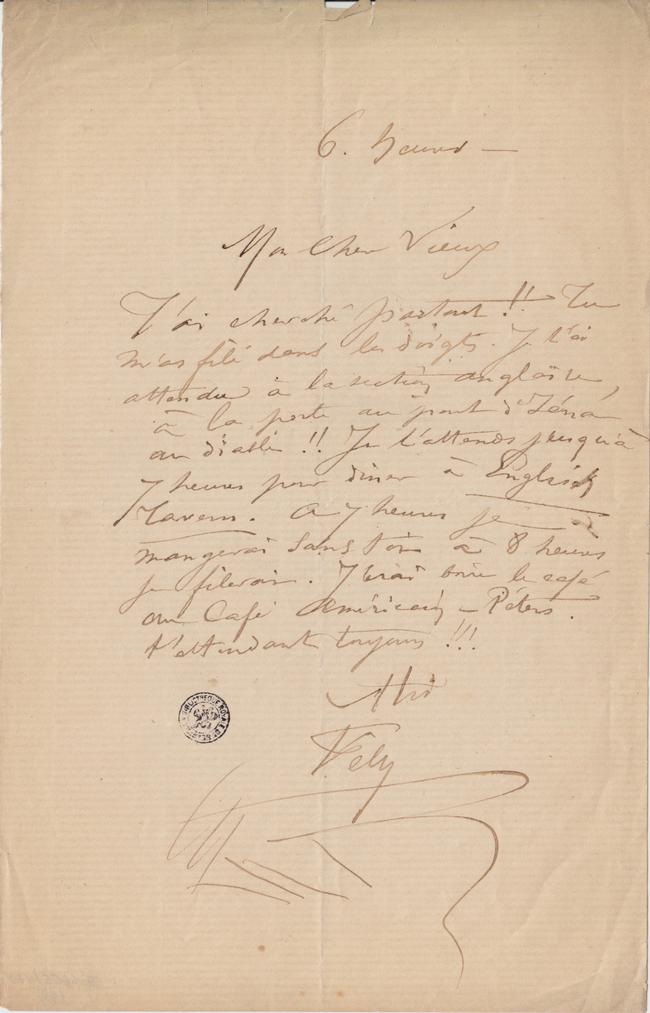 6. heures —
Mon Cher Vieux
J'ai cherché partout !! Tu
m'as filé dans les doigts. Je t'ai
attendu à la section anglaise,
à la porte au pont d'Iéna
au diable !! Je t'attends jusqu'à
7 heures pour diner à English
Tavern. A 7 heures je
mangerai sans toi à 8 heures
je filerai. J'irai boire le café
au Café Américain – Péters.
t'attendant toujours !!!
à toi
Fély